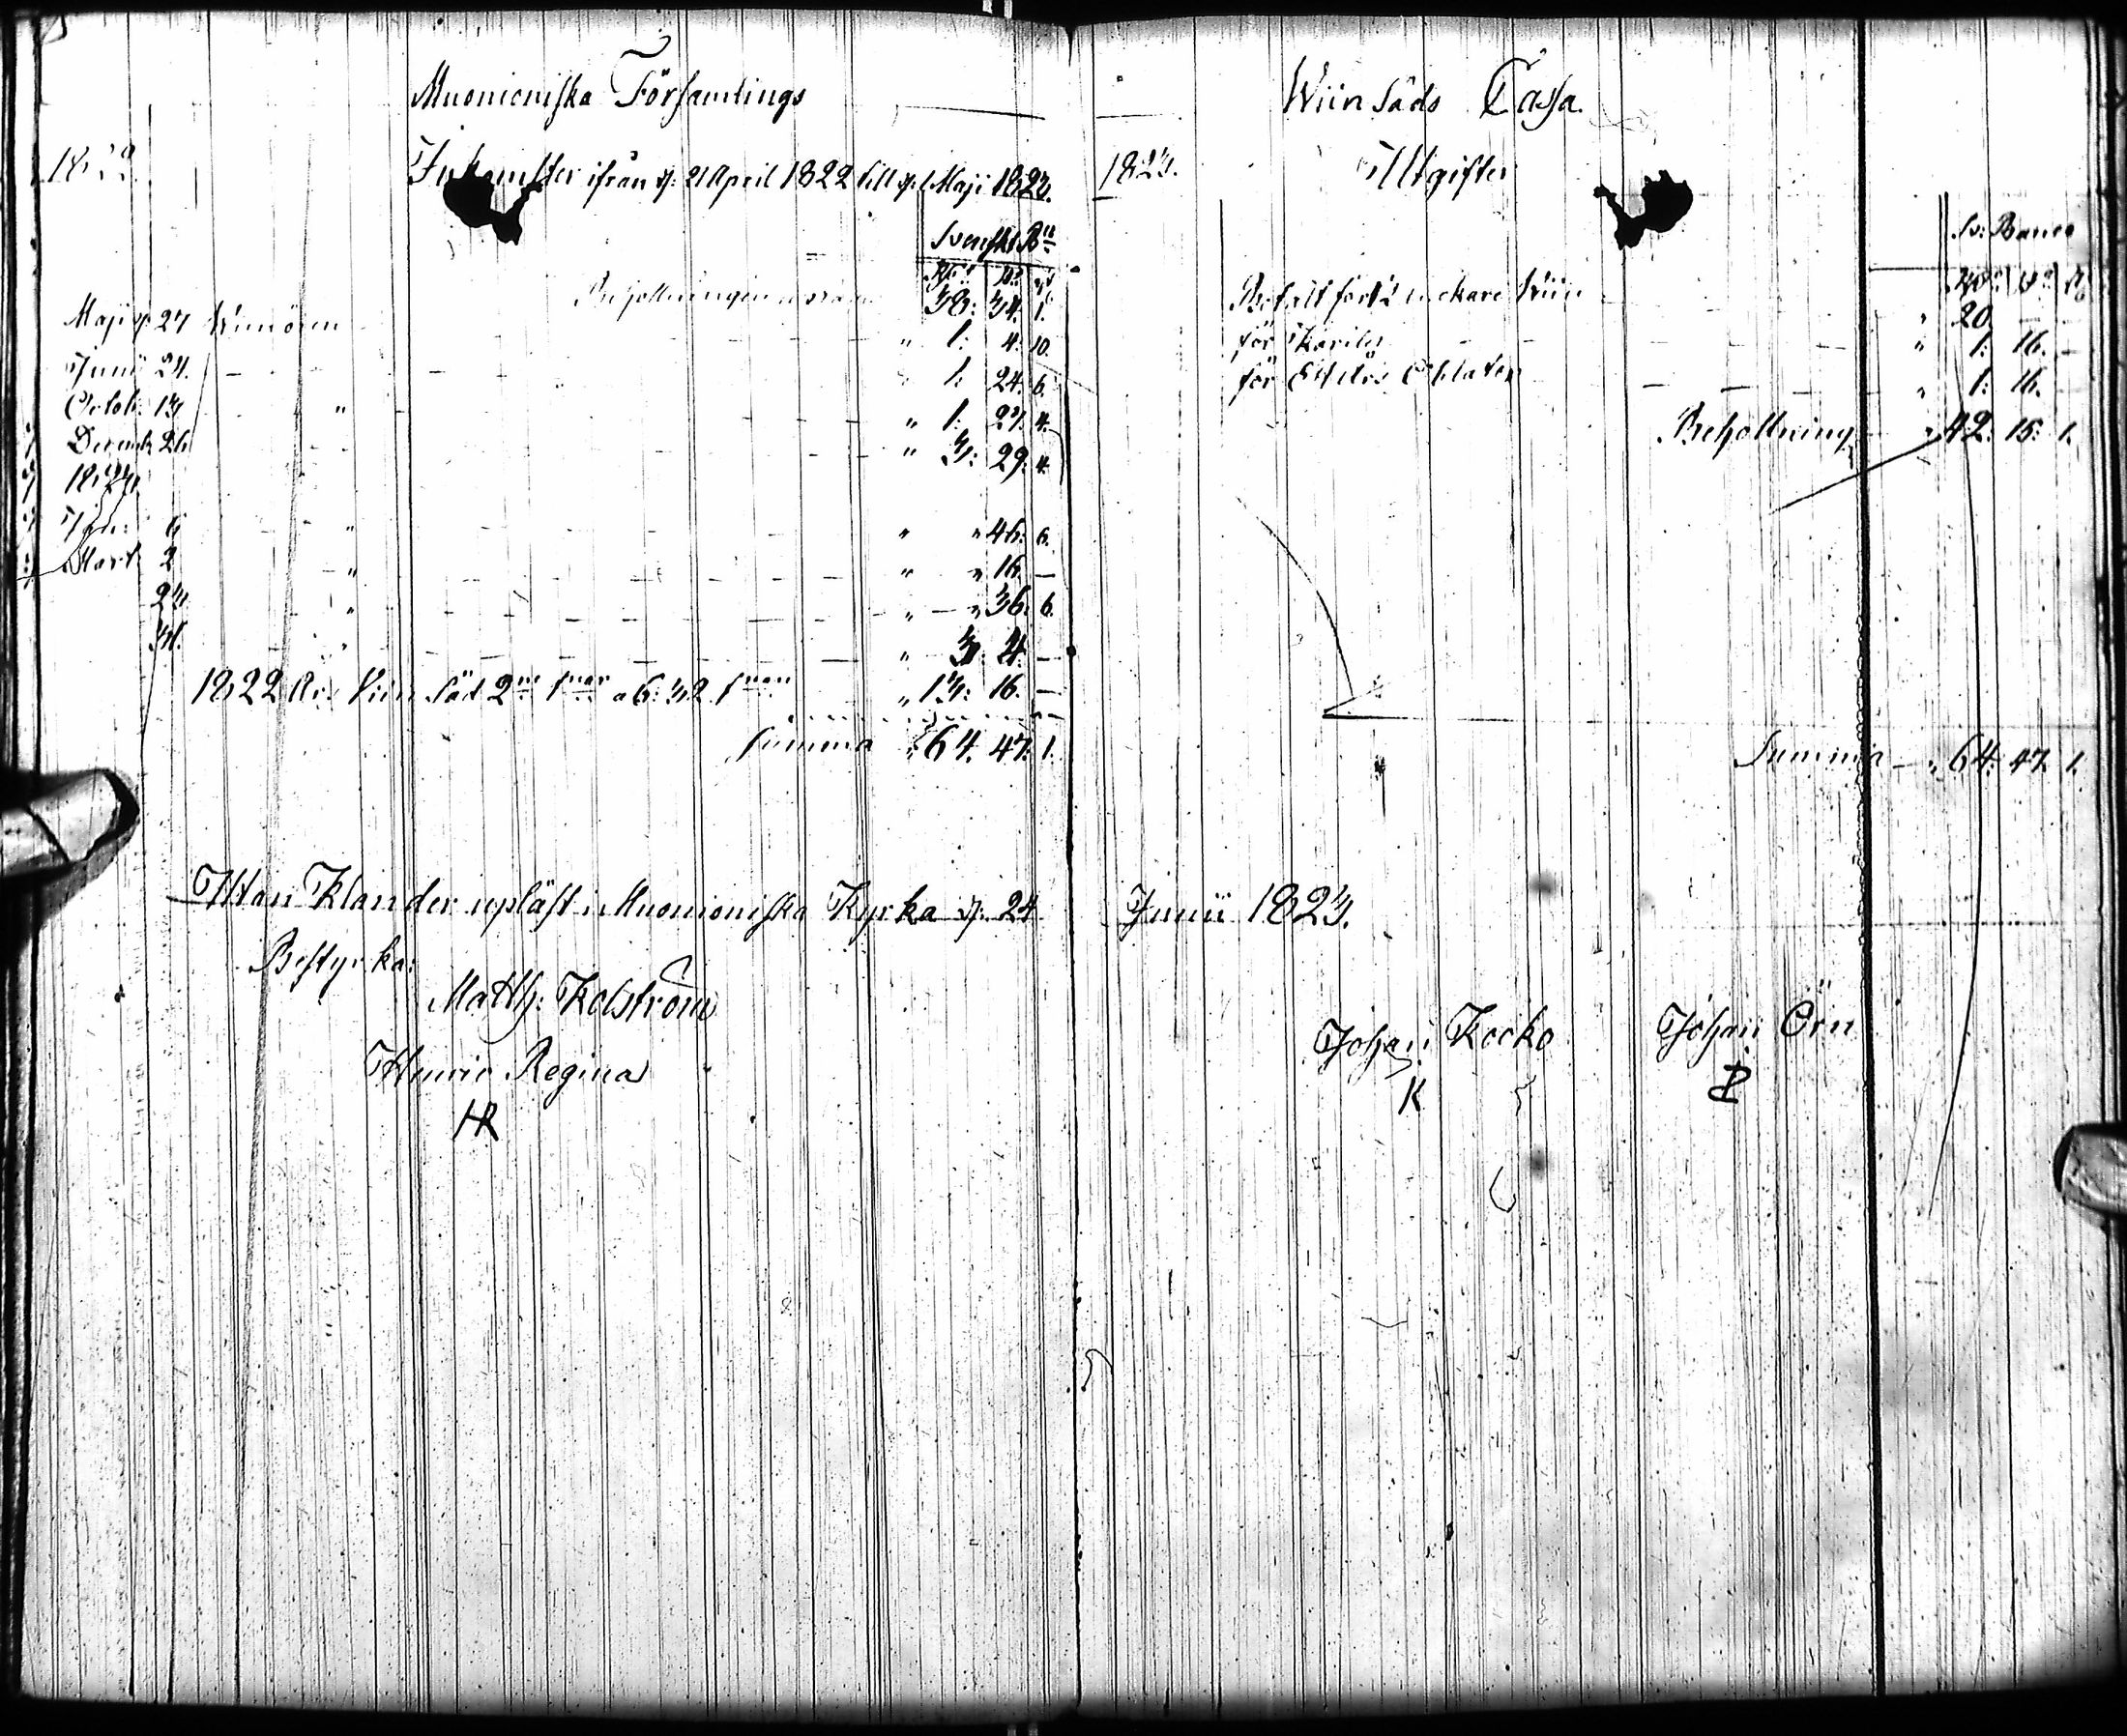 Muonioniska Församlings
1822.
Inkomster ifrån d. 21 April 1822 till d. 1 Maji 1823.
Svenskt B:co
Behållningen
38: 34. 1.
Maji d. 27 " 1: 4: 10.
Junii 24. " 1: 24: 6.
Octob: 13 " " 1: 27: 4.
Decemb. 26 " 3: 29: 4.
1823.
Jan: 6 " " " 46: 6.
Mart. 2 " " " 16. —
23 " " " 36: 6.
31. " " 3: 4. —
1822 års Viin Säd 2 a 6: 32 " 13: 16. —
Summa " 64. 47: 1.
Utan Klander upläst i Muonioniska Kyrka d. 24
Bestyrka:
Matth: Kolström
Henric Regina
HR
Wiin Säds Cassa.
1823. Utgifter
Sv: Banco
Betalt för Viin " 20. —
för " 1: 16. —
för Oblater " 1: 16. —
Behållning " 42: 15: 1.
Summa " 64: 47. 1.
Junii 1823.
Johan Kocko Johan Örn
K